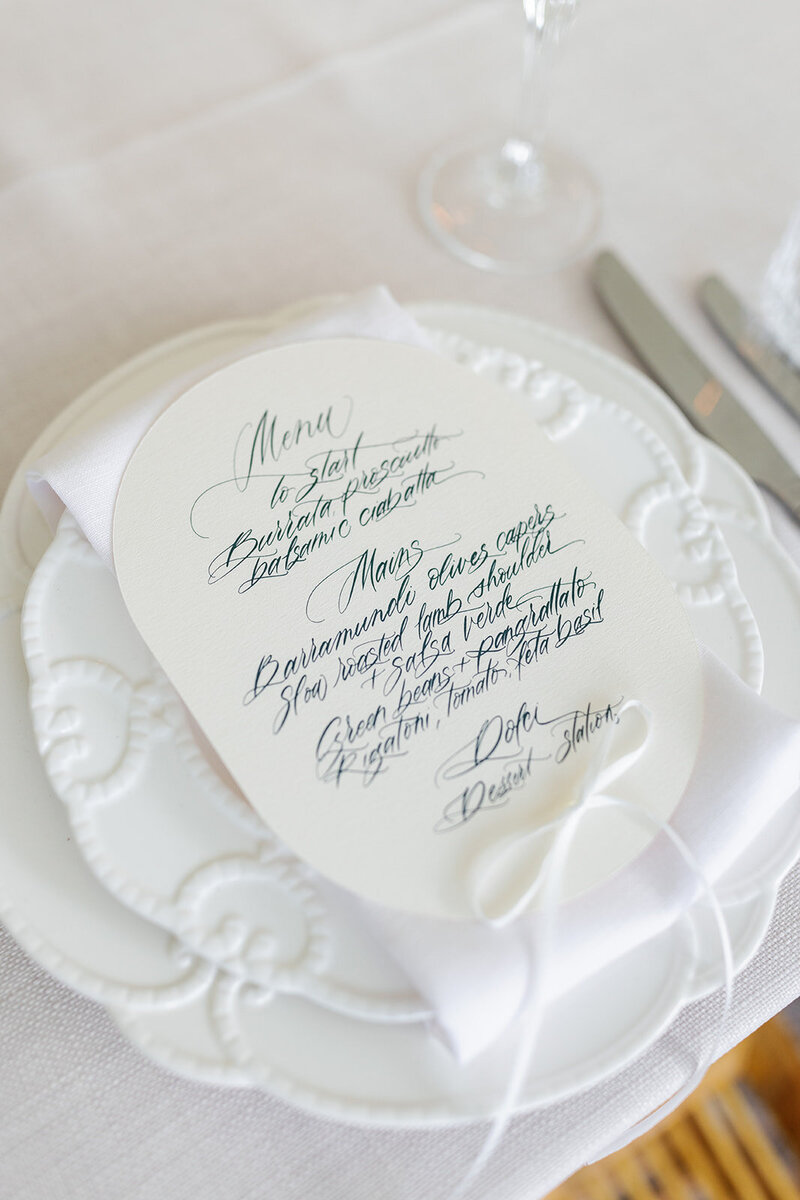 Menu
to start
Burrata, prosciutto
balsamic ciabatta
Mains
Barramundi olives capers
Slow roasted lamb shoulder
+ Salsa verde
Green beans + pangrattato
Rigatoni, tomato, feta basil
Dolci
Dessert station